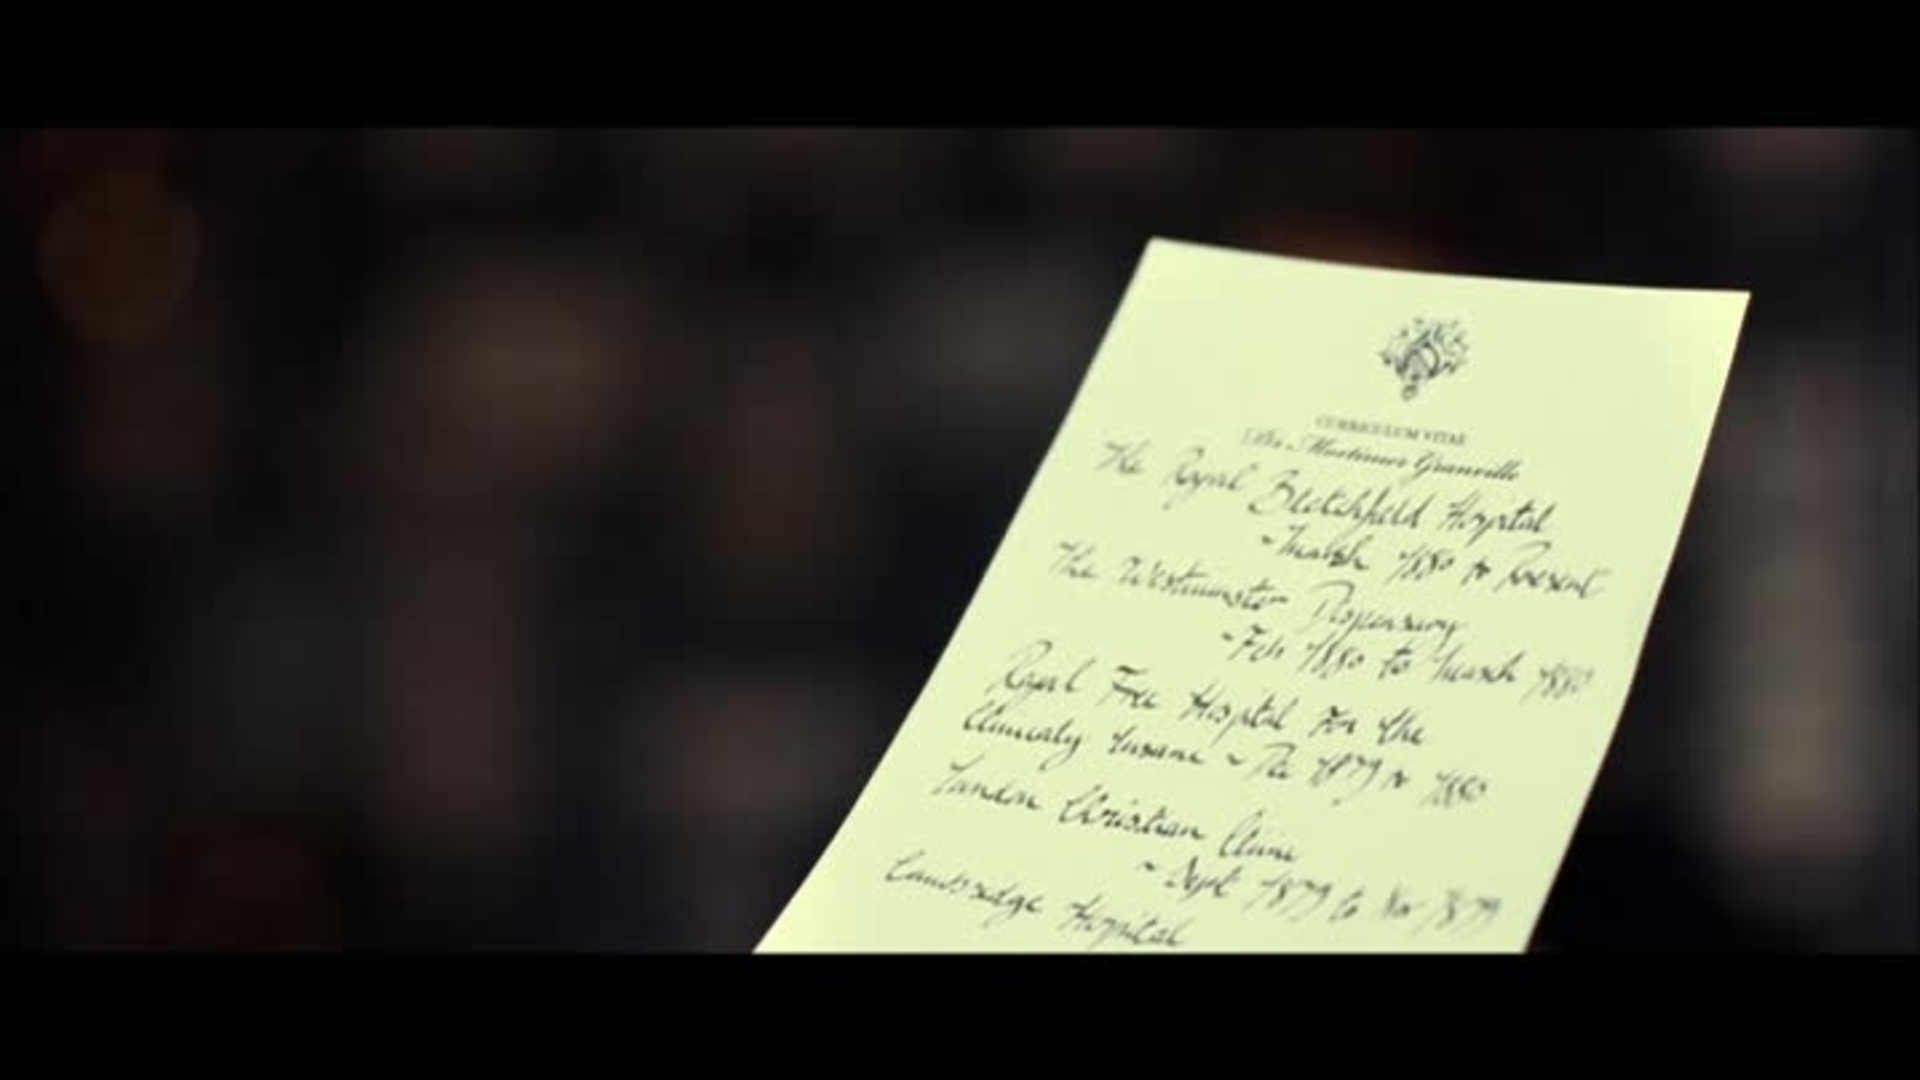 CURRICULUM VITAE
Dr. Mortimer Granville
The Royal Beetchfield Hospital
~ March 1880 to Present
The Westminster Dispensary
~ Feb 1880 to March 1880
Royal Free Hospital For the
Clinicaly Insane ~ Dec 1879 to 1880
London Christian Clinic
~ Sept 1879 to Nov 1879
Cambridge Hospital